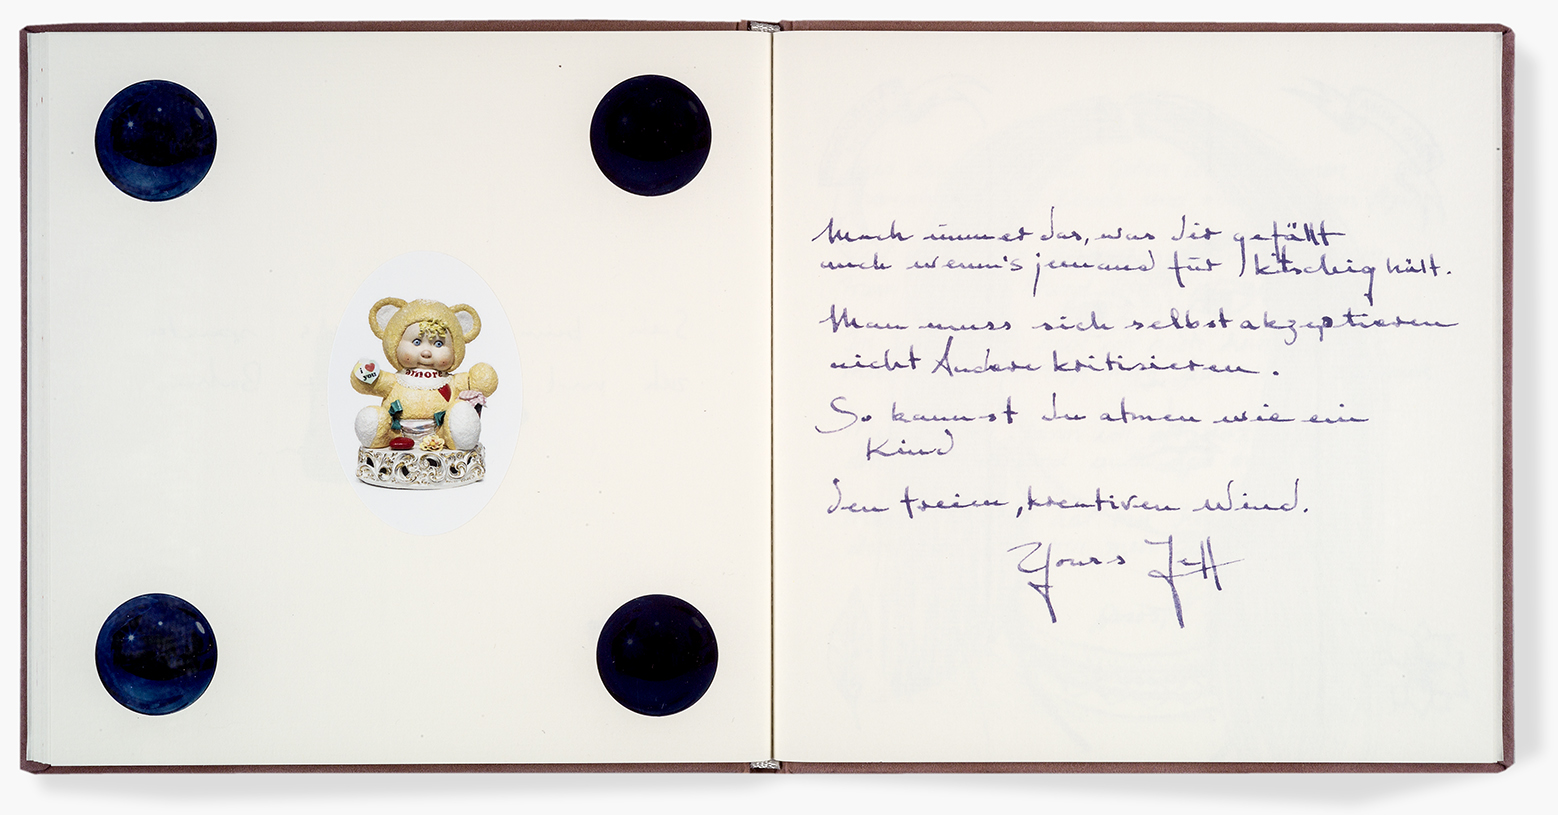 i ❤ you
amore
Mach immer das, was dir gefällt
auch wenn's jemand für kitschig hält.
Man muss sich selbst akzeptieren
nicht Andere kritisieren.
So kannst du atmen wie ein
Kind
den freien, kreativen Wind.
Yours Jeff